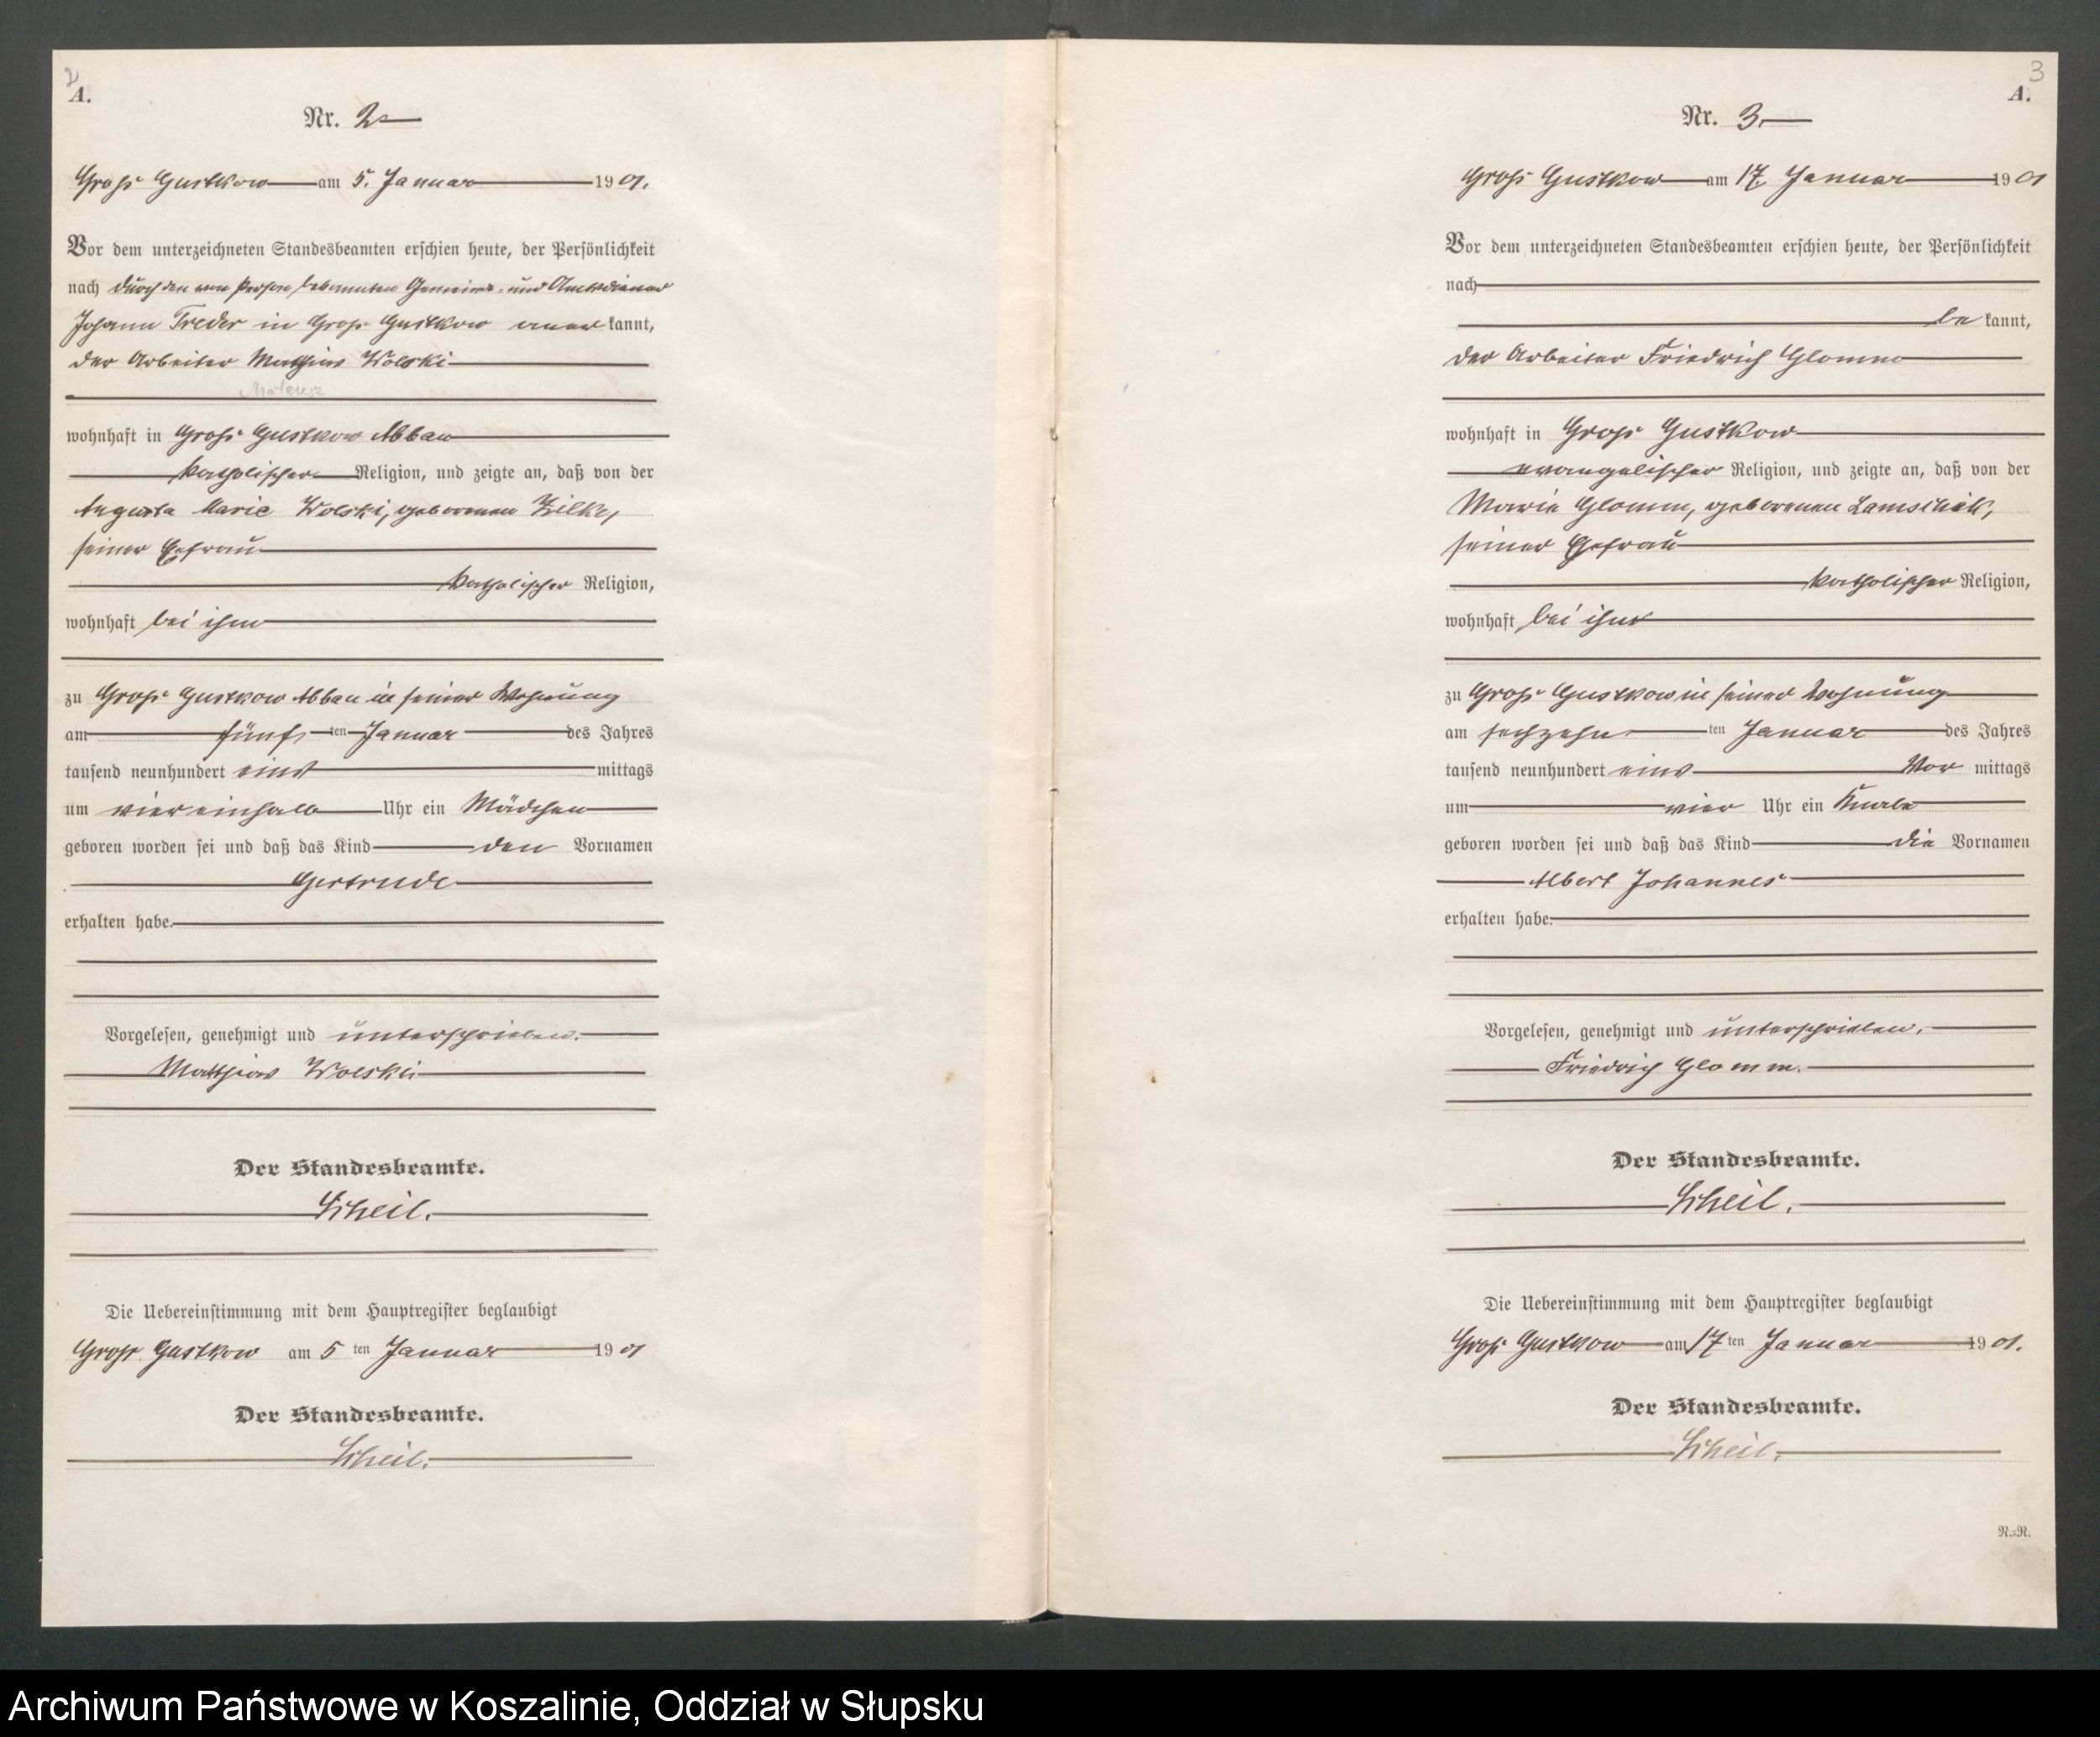 2
A.
Nr. 2
Groß Gustkow am 5. Januar 1901.
Vor dem unterzeichneten Standesbeamten erschien heute, der Persönlichkeit
nach durch den von Person bekannten Gemeinde- und Amtsdiener
Johann Treder in Groß Gustkow anerkannt,
der Arbeiter Mathias Wolski
Mateusz
wohnhaft in Groß Gustkow Abbau
katholischer Religion, und zeigte an, daß von der
Augusta Marie Wolski, geborenen Zilke,
seiner Ehefrau
katholischer Religion,
wohnhaft bei ihm
zu Groß Gustkow Abbau in seiner Wohnung
am fünften Januar des Jahres
tausend neunhundert eins mittags
um viereinhalb Uhr ein Mädchen
geboren worden sei und daß das Kind den Vornamen
Gertrude
erhalten habe.
Vorgelesen, genehmigt und unterschrieben.
Matthias Wolski
Der Standesbeamte.
Scheil.
Die Uebereinstimmung mit dem Hauptregister beglaubigt
Groß Gustkow am 5 ten Januar 1901
Der Standesbeamte.
Scheil.
3
A.
Nr. 3.
Groß Gustkow am 17. Januar 1901
Vor dem unterzeichneten Standesbeamten erschien heute, der Persönlichkeit
nach
bekannt,
der Arbeiter Friedrich Glomm
wohnhaft in Groß Gustkow
evangelischer Religion, und zeigte an, daß von der
Marie Glomm, geborenen Lamschik,
seiner Ehefrau
katholischer Religion,
wohnhaft bei ihm
zu Groß Gustkow in seiner Wohnung
am sechzehn ten Januar des Jahres
tausend neunhundert eins Vor mittags
um vier Uhr ein Knabe
geboren worden sei und daß das Kind die Vornamen
Albert Johannes
erhalten habe.
Vorgelesen, genehmigt und unterschrieben.
Friedrich Glomm.
Der Standesbeamte.
Scheil.
Die Uebereinstimmung mit dem Hauptregister beglaubigt
Groß Gustkow am 17 ten Januar 1901.
Der Standesbeamte.
Scheil.
R.=R.
Archiwum Państwowe w Koszalinie, Oddział w Słupsku